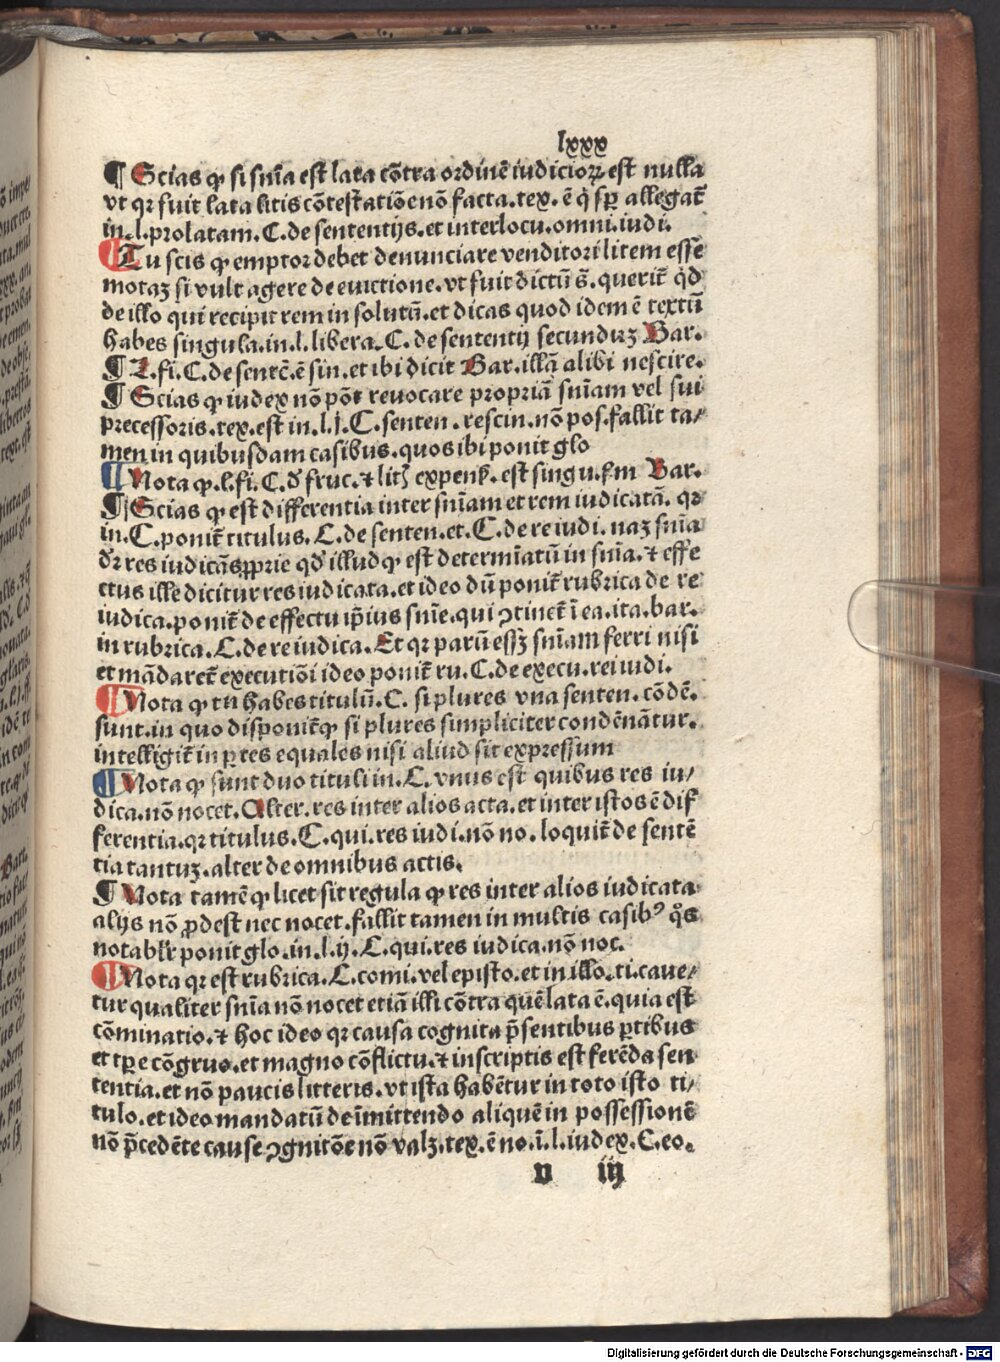 lxxx
¶ Scias ꝙ si snīa est lata cōtra ordinē iudicioꝝ est nulla
vt qꝛ fuit lata litis cōtestatiōe nō facta. tex. ē q̇ sꝑ allegat̄
in. l. prolatam. C. de sententijs. et interlocu. omni. iudi.
¶ Tu scis ꝙ emptor debet denunciare venditori litem esse
motaꝫ si vult agere de euictione. vt fuit dictū s̄. querit̄ qd̓
de illo qui recipit rem in solutū. et dicas quod idem ē textū
habes singula. in. l. libera. C. de sententij secunduꝫ Bar.
¶ L. fi. C. de sentē. ē sin. et ibi dicit Bar. illā alibi nescire.
¶ Scias ꝙ iudex nō pōt reuocare propriā snīam vel sui
precessoris. tex. est in. l. j. C. senten. rescin. nō pos. fallit ta/
men in quibusdam casibus. quos ibi ponit glo
¶ Nota ꝙ. l. fi. C. d̓ fruc. ⁊ lit̄ expenß. est singu. ẜm Bar.
¶ Scias ꝙ est differentia inter snīam et rem iudicatā. qꝛ
in. C. ponit̄ titulus. C. de senten. et. C. de re iudi. naꝫ snīa
dr̄ res iudicās ꝓprie qd̓ illudꝙ est determīatū in snīa. ⁊ effe
ctus ille dicitur res iudicata. et ideo dū ponit̄ rubrica de re
iudica. ponit̄ de effectu ip̄ius snīe. qui ꝯtinet̄ ī ea. ita. bar.
in rubrica. C. de re iudica. Et qꝛ parū eſſꝫ snīam ferri nisi
et mādaret̄ executiōi ideo ponit̄ ru. C. de execu. rei iudi.
¶ Nota ꝙ tu habes titulū. C. si plures vna senten. cōdē.
sunt. in quo disponit̄ꝙ si plures simpliciter condēnātur.
intelligit̄ in ꝑtes equales nisi aliud sit expressum
¶ Nota ꝙ sunt duo tituli in. C. vnus est quibus res iu/
dica. nō nocet. Alter. res inter alios acta. et inter istos ē dif
ferentia. qꝛ titulus. C. qui. res iudi. nō no. loquit̄ de sentē
tia tantuꝫ. alter de omnibus actis.
¶ Nota tamē ꝙ licet sit regula ꝙ res inter alios iudicata
alijs nō ꝓdest nec nocet. fallit tamen in multis casibꝰ q̊s
notablr̄ ponit glo. in. l. ij. C. qui. res iudica. nō noc.
¶ Nota qꝛ est rubrica. C. comi. vel episto. et in illo. ti. caue/
tur qualiter snīa nō nocet etiā illi cōtra quē lata ē. quia est
cōminatio. ⁊ hoc ideo qꝛ causa cognita p̄sentibus ꝑtibus
et tꝑe cōgruo. et magno cōflictu. ⁊ inscriptis est ferēda sen
tentia. et nō paucis litteris. vt ista habētur in toto isto ti/
tulo. et ideo mandatū de īmittendo aliquē in possessionē
nō p̄cedēte cause ꝯgnitōe nō valꝫ. tex. ē no. ī. l. iudex. C. eo.
v iij
Digitalisierung gefördert durch die Deutsche Forschungsgemeinschaft - DFG